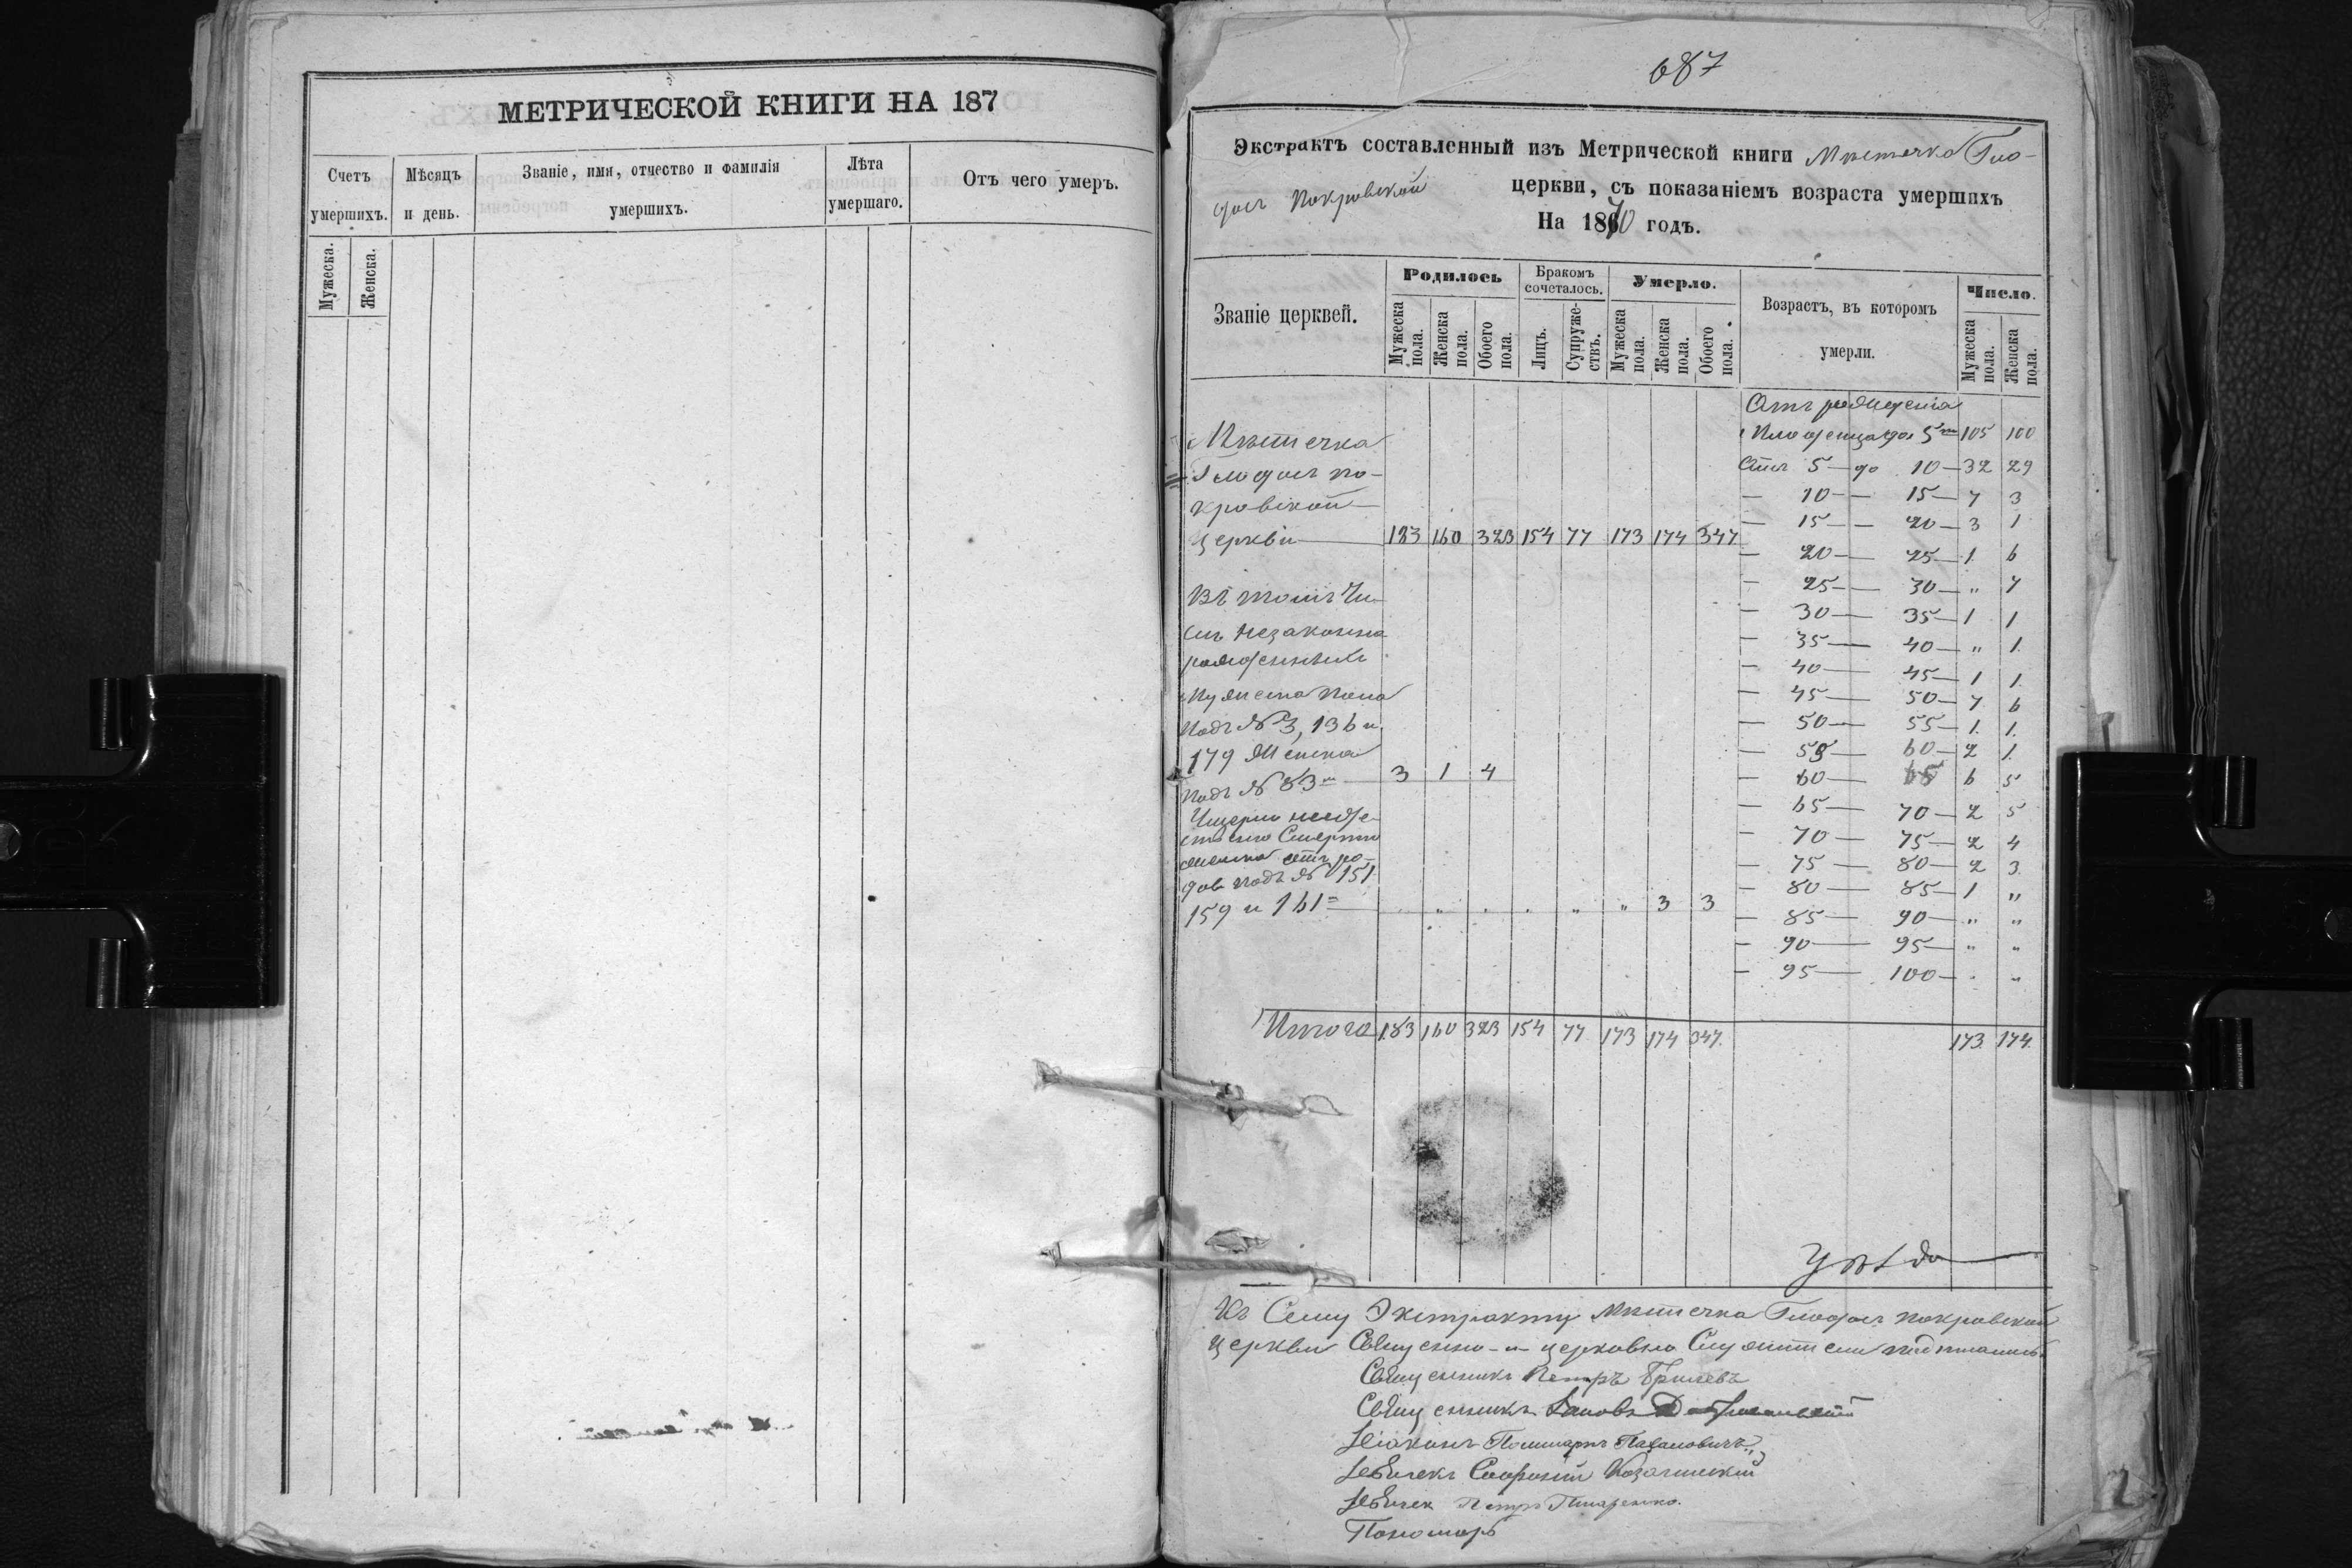 МЕТРИЧЕСКОЙ КНИГИ НА 187
Счетъ умершихъ.
Мѣсяцъ и день.
Званіе, имя, отчество и фамилія умершихъ.
Лѣта умершаго.
Отъ чего умеръ.
Мужеска.
Женска.
687
Экстрактъ составленный изъ Метрической книги Мѣстечка Гло-
досъ Покровской церкви, съ показаніемъ возраста умершихъ
На 1870 годъ.
Званіе церквей.
Родилось
Бракомъ сочеталось.
Умерло.
Возрастъ, въ которомъ умерли.
Число.
Мужеска пола.
Женска пола.
Обоего пола.
Лицъ.
Супружествъ.
Мужеска пола.
Женска пола.
Обоего пола.
Мужеска пола.
Женска пола.
Отъ рожденія
Младенца до 5 105 100
Отъ 5 — до 10 — 32 29
— 10 — 15 — 7 3
— 15 — 20 — 3 1
— 20 — 25 — 1 6
— 25 — 30 — " 7
— 30 — 35 — 1 1
— 35 — 40 — " 1
— 40 — 45 — 1 1
— 45 — 50 — 7 6
— 50 — 55 — 1 1
— 55 — 60 — 2 1
— 60 — 65 6 5
— 65 — 70 — 2 5
— 70 — 75 — 2 4
— 75 — 80 — 2 3
— 80 — 85 — 1 "
— 85 — 90 — " "
— 90 — 95 — " "
— 95 — 100 — " "
Мѣстечка
Глодосъ По-
кровской
церкви 183 160 323 154 77 173 174 347
Въ томъ чи-
слѣ незаконно
рожденныхъ
Мужеска пола
подъ № 3, 136 и
179 Женска
подъ № 83 3 1 4
Умерло
Смертію
женска отъ ро-
довъ подъ № 151
159 и 161 " " " " " " 3 3
Итого 183 160 323 154 77 173 174 347. 173. 174.
Къ Сему Экстракту Мѣстечка Глодосъ Покровской
церкви Священно-и-церковно Служители подписались.
Священникъ Петръ
Священникъ Іаковъ
Діаконъ
Дьячекъ Софроній
Дьячек Петръ
Пономарь